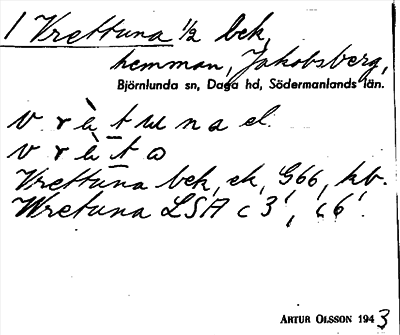 1 Vrettuna 1/2 bek.
hemman, Jakobsberg,
Björnlunda sn, Daga hd, Södermanlands län.
v r ὲ t u n a el.
v r ὲ t a
Vrettuna bek, ek, G66, kb.
Wretuna LSA c 3', c 6'.
ARTUR OLSSON 1943